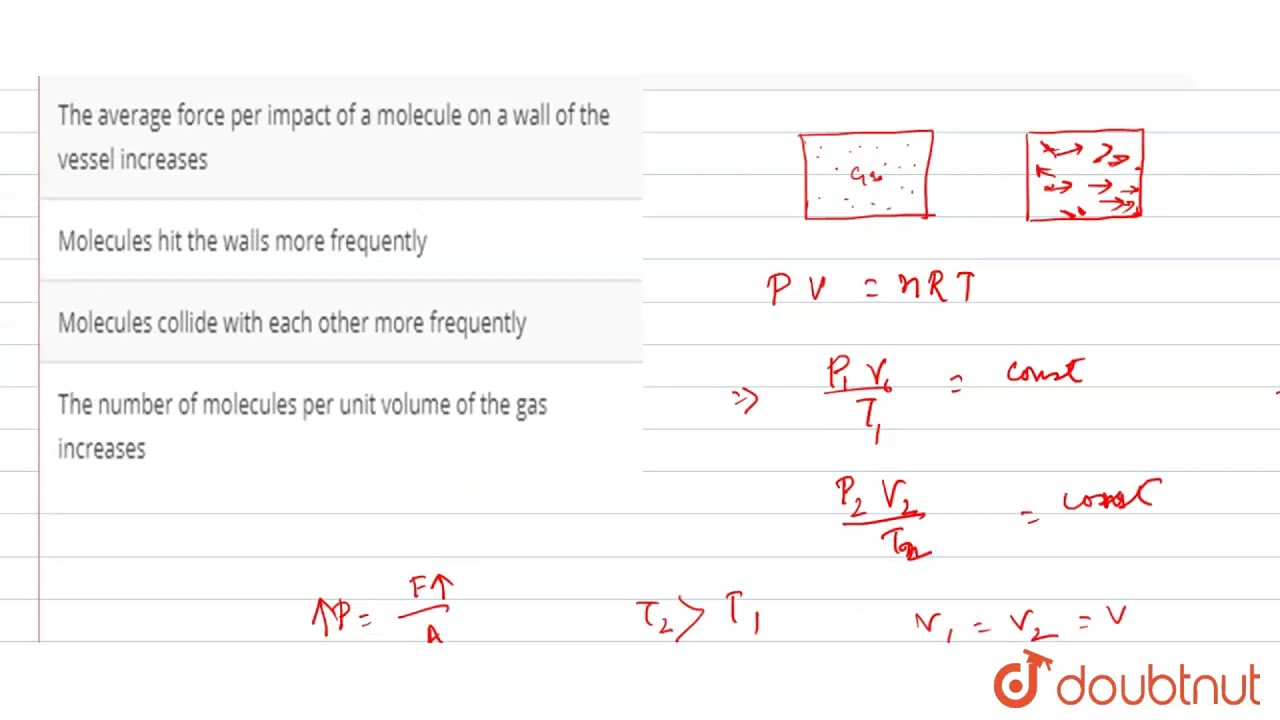 The average force per impact of a molecule on a wall of the
vessel increases
Molecules hit the walls more frequently
Molecules collide with each other more frequently
The number of molecules per unit volume of the gas
increases
Gas
P V = n R T
⇒ P₁ V₁ / T₁ = const
P₂ V₂ / T₂ = const
↑P = F↑ / A
T₂ > T₁
V₁ = V₂ = V
doubtnut